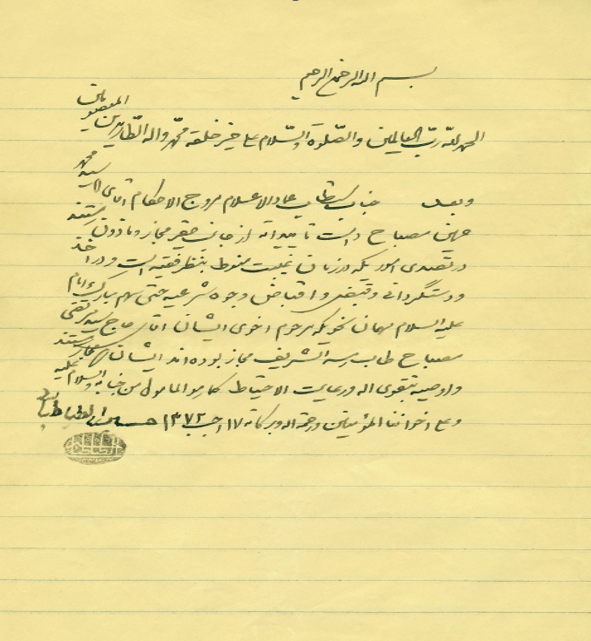 بسم الله الرحمن الرحیم
الحمد لله رب العالمین والصلوة والسلام علی خیر خلقه محمد واله الطاهرین المعصومین
وبعد جناب مستطاب عماد الاعلام مروج الاحکام آقای سید محمد
مصباح دامت تاییداته از جانب حقیر مجاز و ماذون هستند
در تصدی امور یکه در زمان غیبت منوط بنظر فقیه است و در اخذ
و دستگردانی و قبض و اقباض وجوه شرعیه حتی سهم مبارک امام
علیه السلام بهمان نحویکه مرحوم اخوی ایشان آقای حاج سید مرتضی
مصباح طاب رمسه الشریف مجاز بوده اند ایشان هم مجاز هستند
واوصیه بتقوی الله ورعایت الاحتیاط کما هو المامول من جنابه والسلام علیه
وعلی اخواننا المؤمنین ورحمة الله وبرکاته ۱۷ رجب ۱۳۷۲